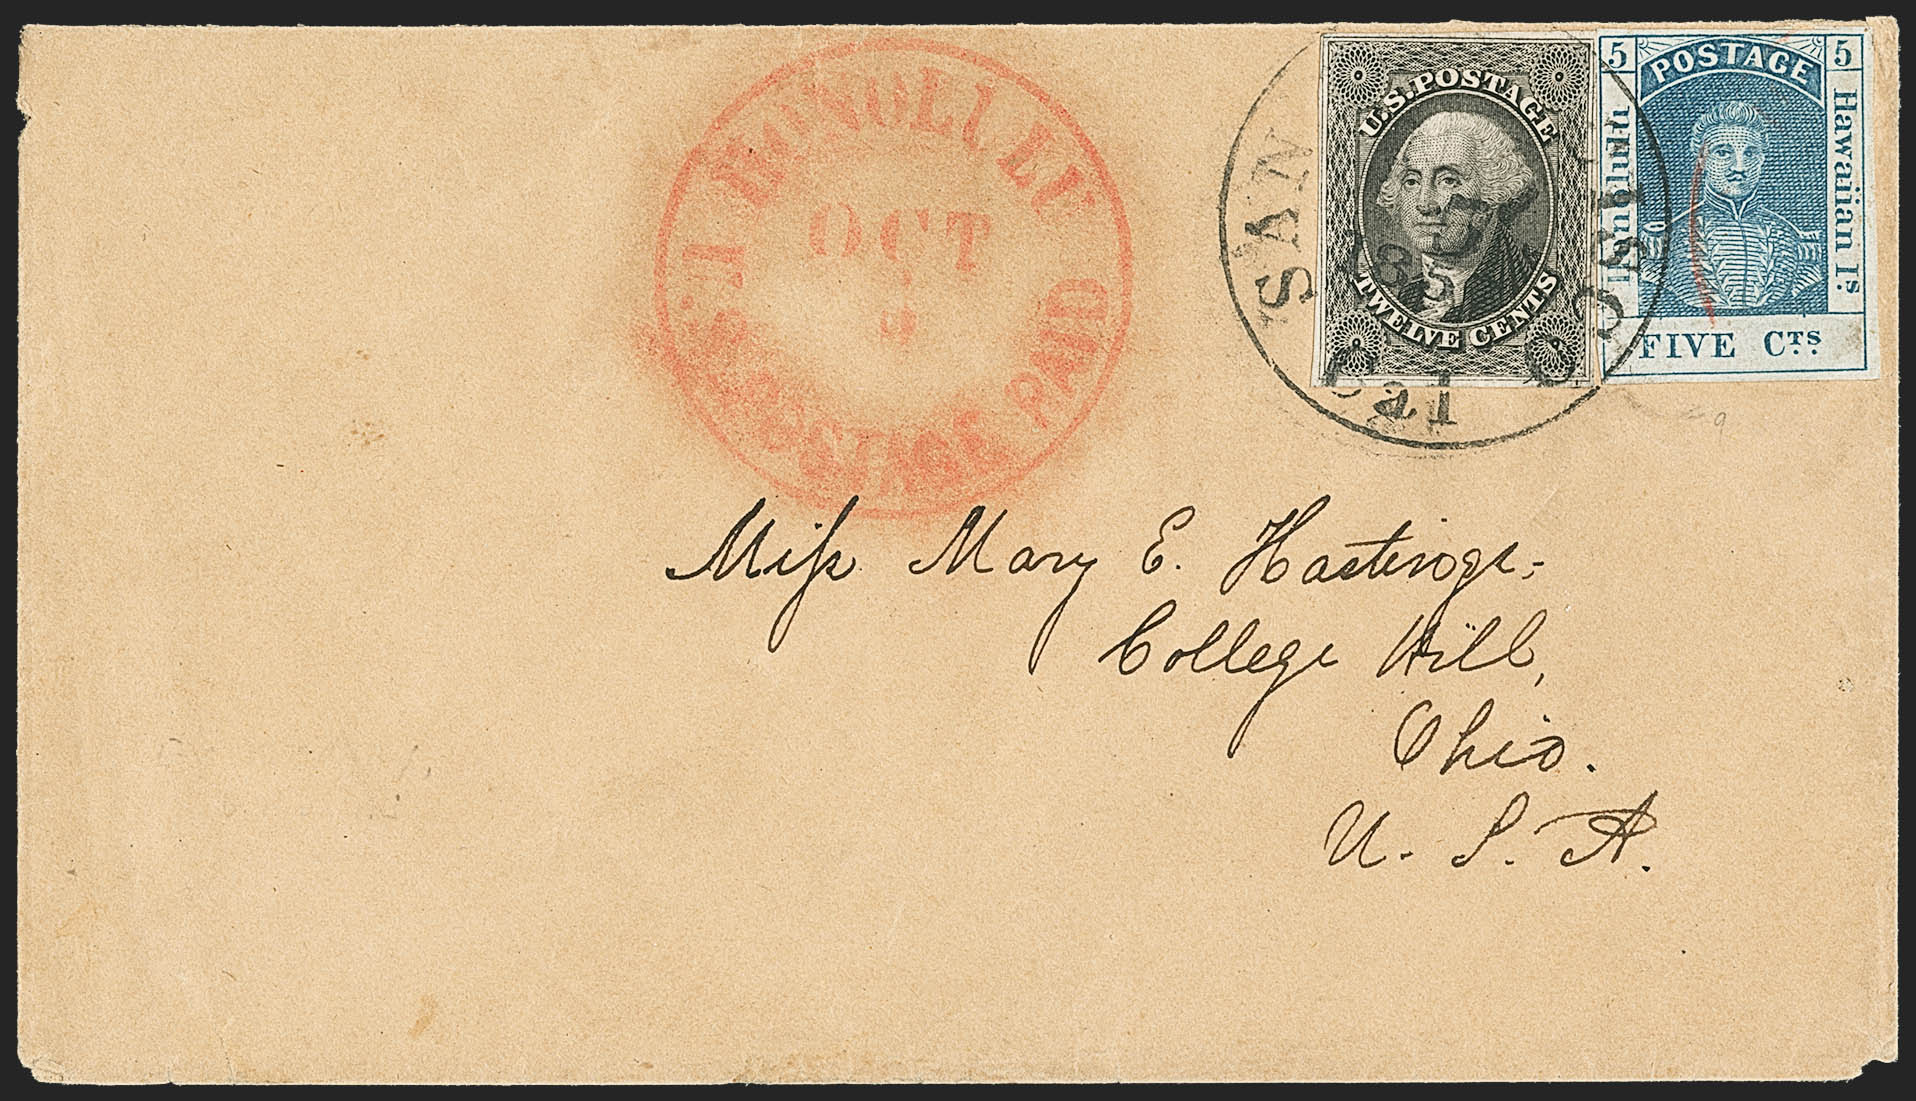 HONOLULU
OCT
U.S. POSTAGE PAID
SAN
Cal
U.S. POSTAGE
TWELVE CENTS
5 POSTAGE 5
Honolulu
Hawaiian Is.
FIVE CTS.
9
Miss Mary E. Hastings,
College Hill,
Ohio.
U. S. A.